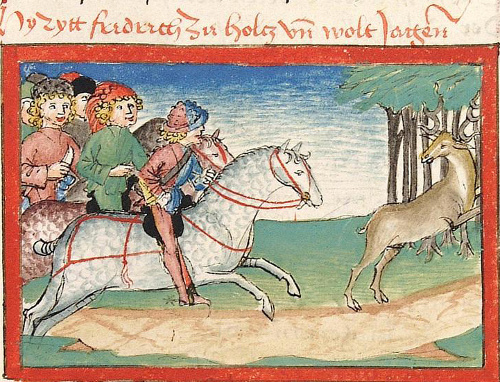 Hy rytt fridrich zu holtz vn̄ wolt Jagen